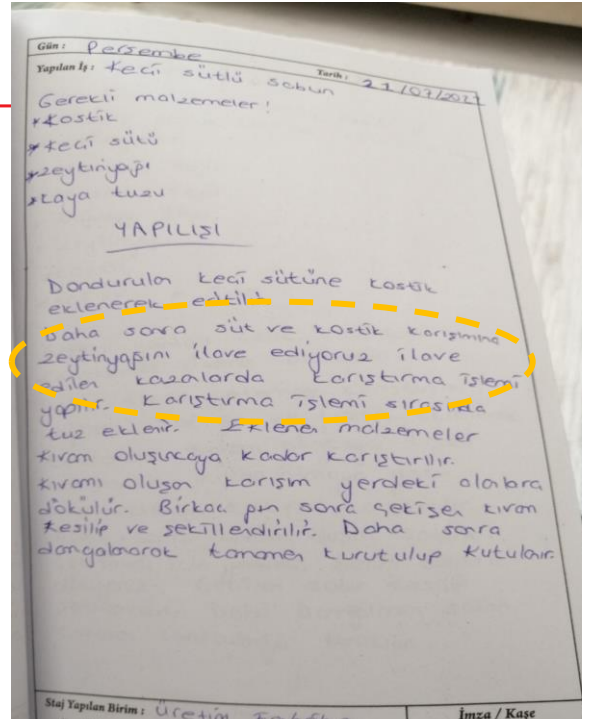 Gün : Perşembe
Yapılan İş : Keçi sütlü sabun Tarih : 21/07/2021
Gerekli malzemeler!
*Kostik
*Keçi sütü
*zeytinyağı
*Kaya tuzu
YAPILIŞI
Dondurulan keçi sütüne kostik
eklenerek eritilir.
Daha sonra süt ve kostik karışımına
zeytinyağını ilave ediyoruz ilave
edilen kazalarda karıştırma işlemi
yapılır. Karıştırma işlemi sırasında
tuz eklenir. Eklenen malzemeler
kıvam oluşuncaya kadar karıştırılır.
Kıvamı oluşan karışım yerdeki
dökülür. Birkaç gün sonra kıvam
kesilip ve şekillendirilir. Daha sonra
tamamen kurutulup kutulanır.
Staj Yapılan Birim : Üretim
İmza / Kaşe